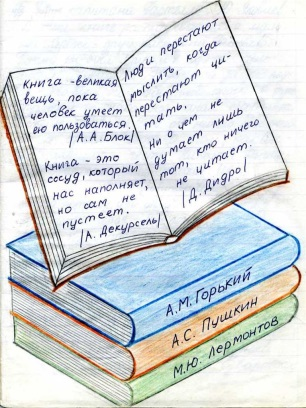 книга - великая
вещь, пока
человек умеет
ею пользоваться.
|А.А.Блок|
Книга - это
сосуд, который
нас наполняет,
но сам не
пустеет.
|А. Декурсель|
Люди перестают
мыслить, когда
перестают чи-
тать.
Ни о чем не
думает лишь
тот, кто ничего
не читает.
|Д. Дидро|
А.М.Горький
А.С. Пушкин
М.Ю. Лермонтов